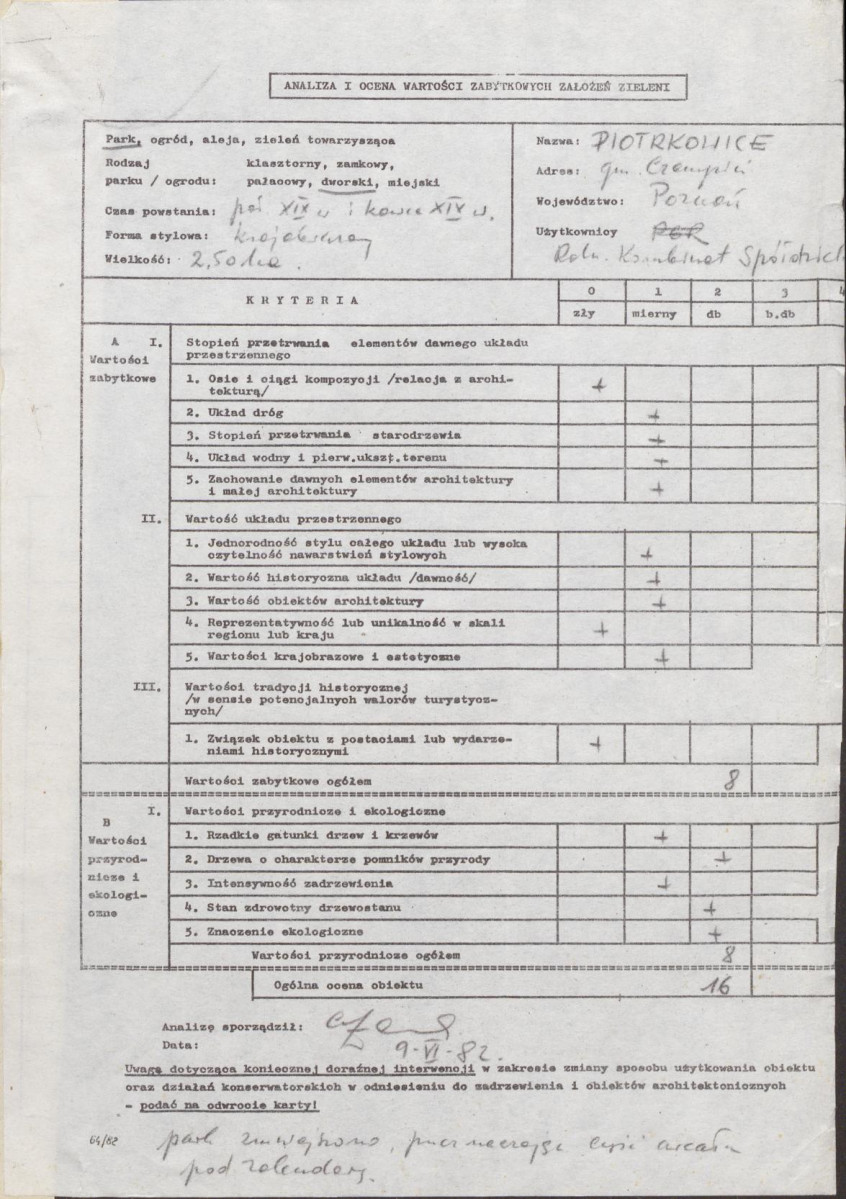 ANALIZA I OCENA WARTOŚCI ZABYTKOWYCH ZAŁOŻEŃ ZIELENI
Park, ogród, aleja, zieleń towarzysząca
Rodzaj klasztorny, zamkowy,
parku / ogrodu: pałacowy, dworski, miejski
Czas powstania: poł. XIX w i koniec XIX w.
Forma stylowa: krajobrazowy
Wielkość: 2,50 ha.
Nazwa: PIOTRKOWICE
Adres: gm. Czempiń
Województwo: Poznań
Użytkownicy PGR
Roln. Kombinat Spółdziel
KRYTERIA
0 1 2 3 4
zły mierny db b.db
A I. Stopień przetrwania elementów dawnego układu
Wartości przestrzennego
zabytkowe 1. Osie i ciągi kompozycji /relacja z archi-
tekturą/ +
2. Układ dróg +
3. Stopień przetrwania starodrzewia +
4. Układ wodny i pierw.ukszt.terenu +
5. Zachowanie dawnych elementów architektury
i małej architektury +
II. Wartość układu przestrzennego
1. Jednorodność stylu całego układu lub wysoka
czytelność nawarstwień stylowych +
2. Wartość historyczna układu /dawność/ +
3. Wartość obiektów architektury +
4. Reprezentatywność lub unikalność w skali
regionu lub kraju +
5. Wartości krajobrazowe i estetyczne +
III. Wartości tradycji historycznej
/w sensie potencjalnych walorów turystycz-
nych/
1. Związek obiektu z postaciami lub wydarze-
niami historycznymi +
Wartości zabytkowe ogółem 8
B I. Wartości przyrodnicze i ekologiczne
Wartości 1. Rzadkie gatunki drzew i krzewów +
przyrod- 2. Drzewa o charakterze pomników przyrody +
nicze i 3. Intensywność zadrzewienia +
ekologi- 4. Stan zdrowotny drzewostanu +
czne 5. Znaczenie ekologiczne +
Wartości przyrodnicze ogółem 8
Ogólna ocena obiektu 16
Analizę sporządził:
Data: 9-VI-82.
Uwagę dotycząca koniecznej doraźnej interwencji w zakresie zmiany sposobu użytkowania obiektu
oraz działań konserwatorskich w odniesieniu do zadrzewienia i obiektów architektonicznych
- podać na odwrocie karty!
64/82 park zmniejszono, przeznaczając część areału
pod zabudowę.